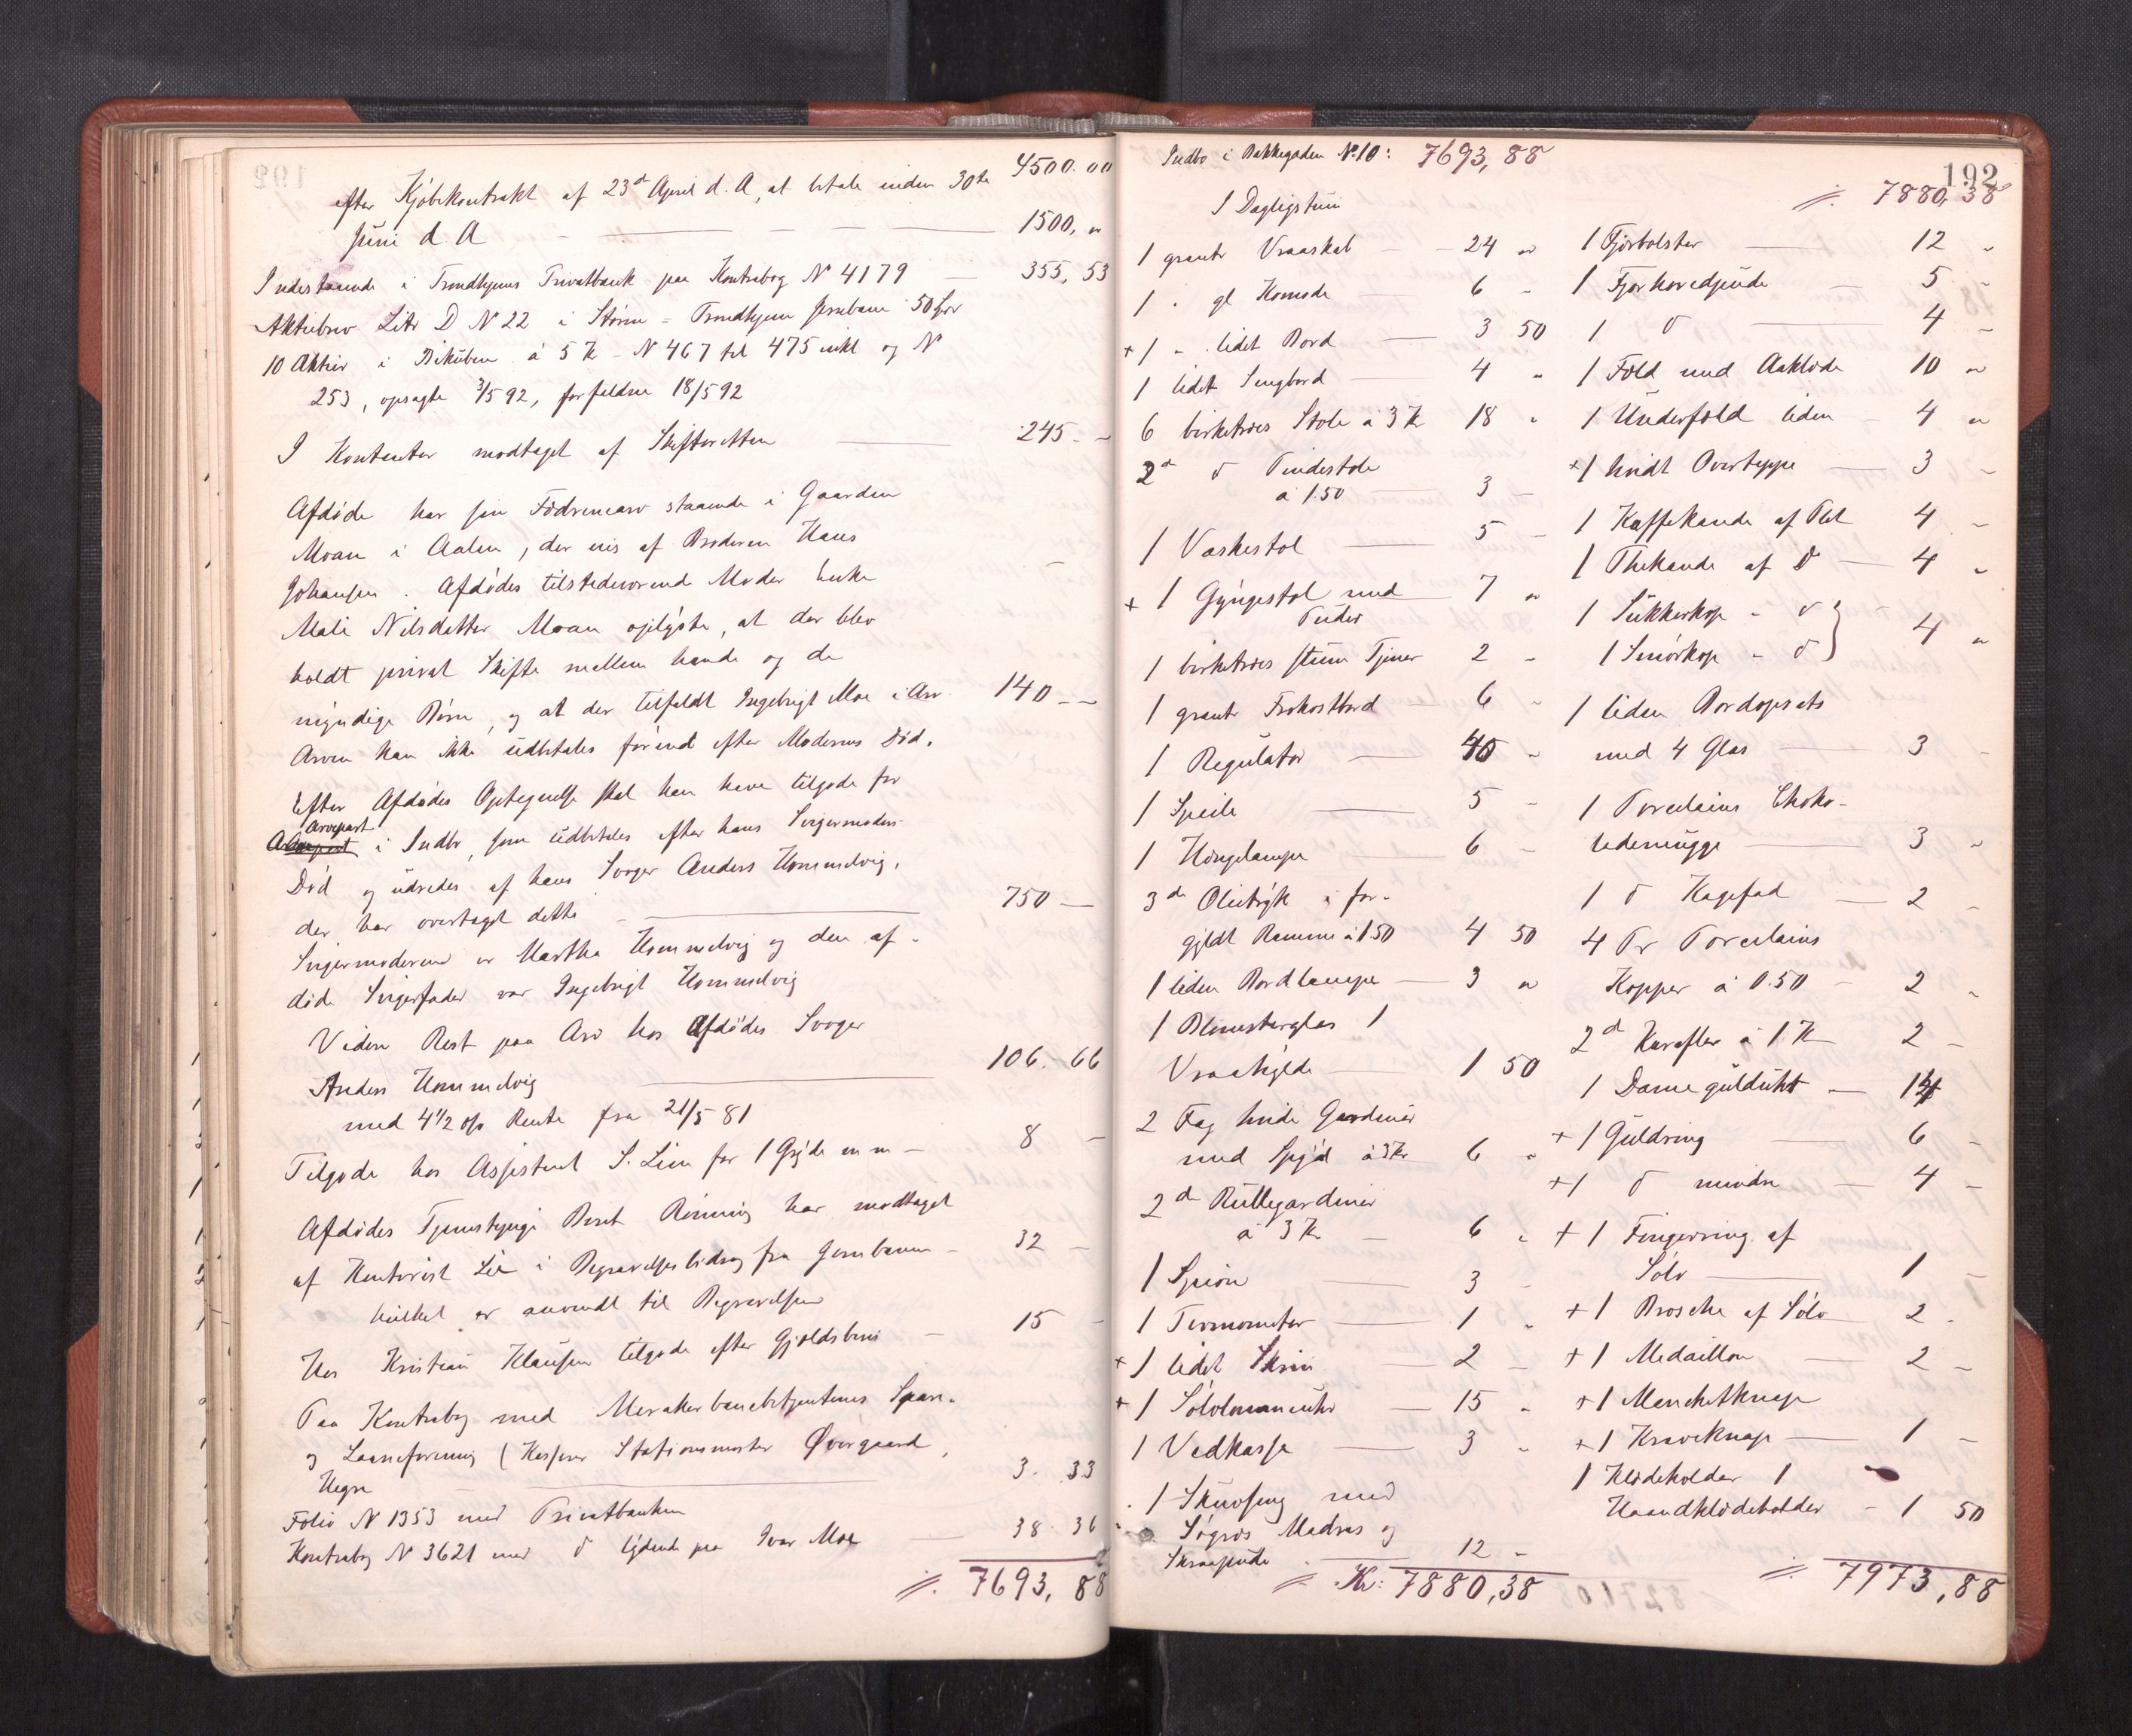 4500.00
efter Kjöbekontrakt af 23de April d. A, at betale inden 30te
Juni d A — 1500, "
Indestaaende i Trondhjems Privatbank paa Kontrabog № 4179 — 355,53
Aktiebrev Litr D № 22 i Stören - Trondhjem Jernbane 50 Spr
10 Aktier i Bikuben á 5 Kr - № 467 til 475 inkl og №
253, opsagte 3/5 92, forfaldne 18/5 92
I Kontanter modtaget af Skifteretten — 245 - -
Afdöde har sin Födrenearv staaende i Gaarden
Moan i Aalen, der eies af Broderen Hans
Johansen. Afdödes tilstedeværend Moder Enke
Mali Nilsdatter Moan oplyste, at der blev
holdt privat Skifte mellem hende og de
myndige Börn, og at der tilfaldt Ingebrigt Moe i Arv 140 - -
Arven kan ikke udbetales förend efter Moderens Död.
Efter Afdödes Optegnelse skal han have tilgode for
arvepart
i Indbo, som udbetales efter hans Svigermoders
Död og udredes af hans Svoger Anders Hommelvig,
der har overtaget dette — 750 —
Svigermoderen er Martha Hommelvig og den af-
döde Svigerfader var Ingebrigt Hommelvig
Videre Rest paa Arv hos Afdödes Svoger
Anders Hommelvig — 106. 66
med 4 1/2 o/o Rente fra 21/5 81
Tilgode hos Assistent S. Lien for 1 Gryde m m — 8 —
Afdödes Tjenestepige Beret Rönning har modtaget
af Kontorist Lie i Begravelsesbidrag fra Jernbanen — 32 —
hvilket er anvendt til Begravelsen
Hos Kristian Klausen tilgode efter Gjeldsbevis — 15 -
Paa Kontrabog med Merakerbanebetjentenes Spare-
og Laaneforening (Kasserer Stationsmester Øvergaard,
Hegre — 3. 33
Folio № 1353 med Privatbanken
Kontrabog № 3621 med do lydende paa Ivar Moe — 38. 36
//. 7693, 88
Indbo i Bakkegaden № 10: 7693,88
192
I Dagligstuen
1 grant Vraaskab — 24 "
1 " gl Komode — 6 "
+ 1 " lidet Bord — 3 50
1 lidet Sengbord — 4 "
6 birketræes Stole á 3 Kr 18 "
2de do Pindestole
á 1.50 — 3 -
1 Vaskestol — 5 -
+ 1 Gyngestol med — 7 "
Puder
1 birketræes stum Tjener 2 -
1 grant Frokostbord — 6 -
1 Regulator — 40 -
1 Speile — 5 -
1 Hængelampe — 6 -
3de Olietryk i for-
gyldt Ramme á 1.50 4 50
1 liden Bordlampe — 3 "
1 Blomsterglas 1
Vraahylde — 1 50
2 Fag hvide Gardiner
med Spyd á 3 Kr 6 "
2de Rullegardiner
á 3 Kr — 6 "
1 Spion — 3 -
1 Termometer — 1 "
+ 1 lidet Skrin — 2 -
+ 1 Sölvlommeuhr — 15 "
1 Vedkasse — 3 "
1 Skuvseng med
Sögræs Madras og
Skraapude — 12 -
// Kr: 7880,38
//. 7880,38
1 Fjærbolster — 12 "
1 Fjærhovedpude — 5 -
1 do — 4 -
1 Fæld med Aaklæde 10 "
1 Underfæld liden — 4 "
+ 1 hvidt Overteppe — 3 -
1 Kaffekande af Plet 4 -
1 Thekande af Do — 4 "
1 Sukkerkop - do
1 Smörkop - do } 4 "
1 liden Bordopsats
med 4 Glas — 3 -
1 Porcelains Choko-
lademugge — 3 "
1 do Kagefad — 2 -
4 Pr Porcelains
Kopper á 0.50 — 2 "
2de Karafler á 1 Kr 2 -
1 Damegulduhr — 14
+ 1 Guldring — 6 -
+ 1 do mindre — 4 -
+ 1 Fingerring af
Sölv — 1 -
+ 1 Brosche af Sölv 2 -
+ 1 Medaillon — 2 -
+ 1 Manchetknap
+ 1 Kraveknap — 1 -
1 Klædeholder 1
Haandklædeholder - 1 50
//. 7973,88